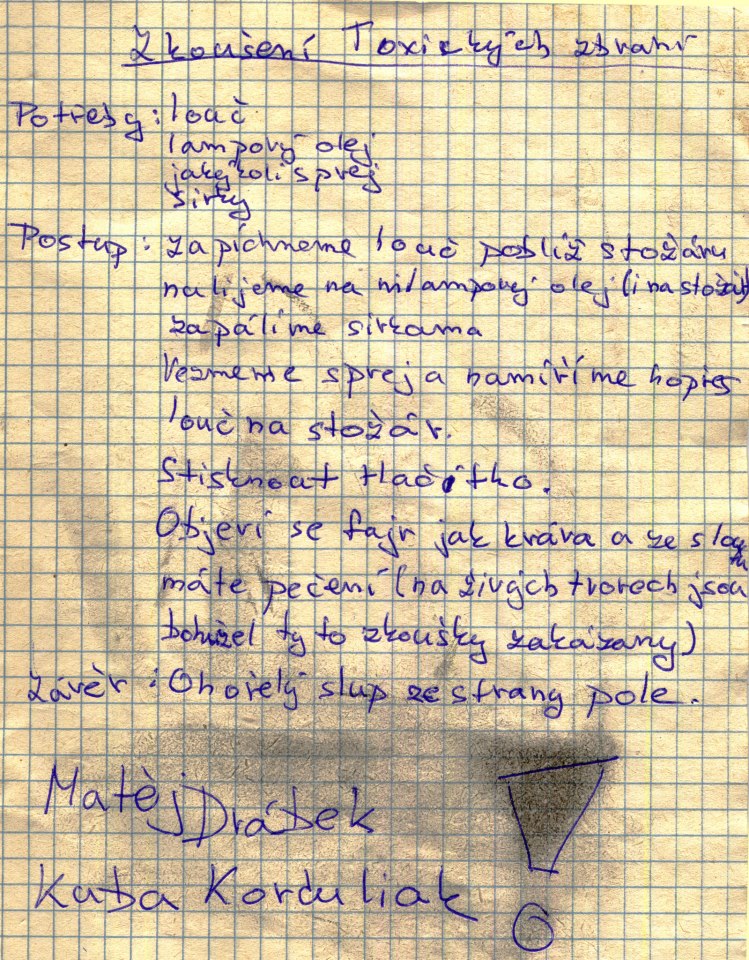 Zkoušení Toxických zbraní
Potřeby: louč
lampový olej
jakýkoli sprej
sirky
Postup: zapíchneme louč poblíž stožáru
nalijeme na ni lampový olej (i na stožár)
zapálíme sirkama
Vezmeme sprej a namíříme hopřes
louč na stožár.
Stisknout tlačítko.
Objeví se fajr jak kráva a ze sloupu
máte pečení (na živých tvorech jsou
bohužel tyto zkoušky zakázany)
Závěr: Ohořelý slup ze strany pole.
Matěj Drábek
Kuba Korduliak